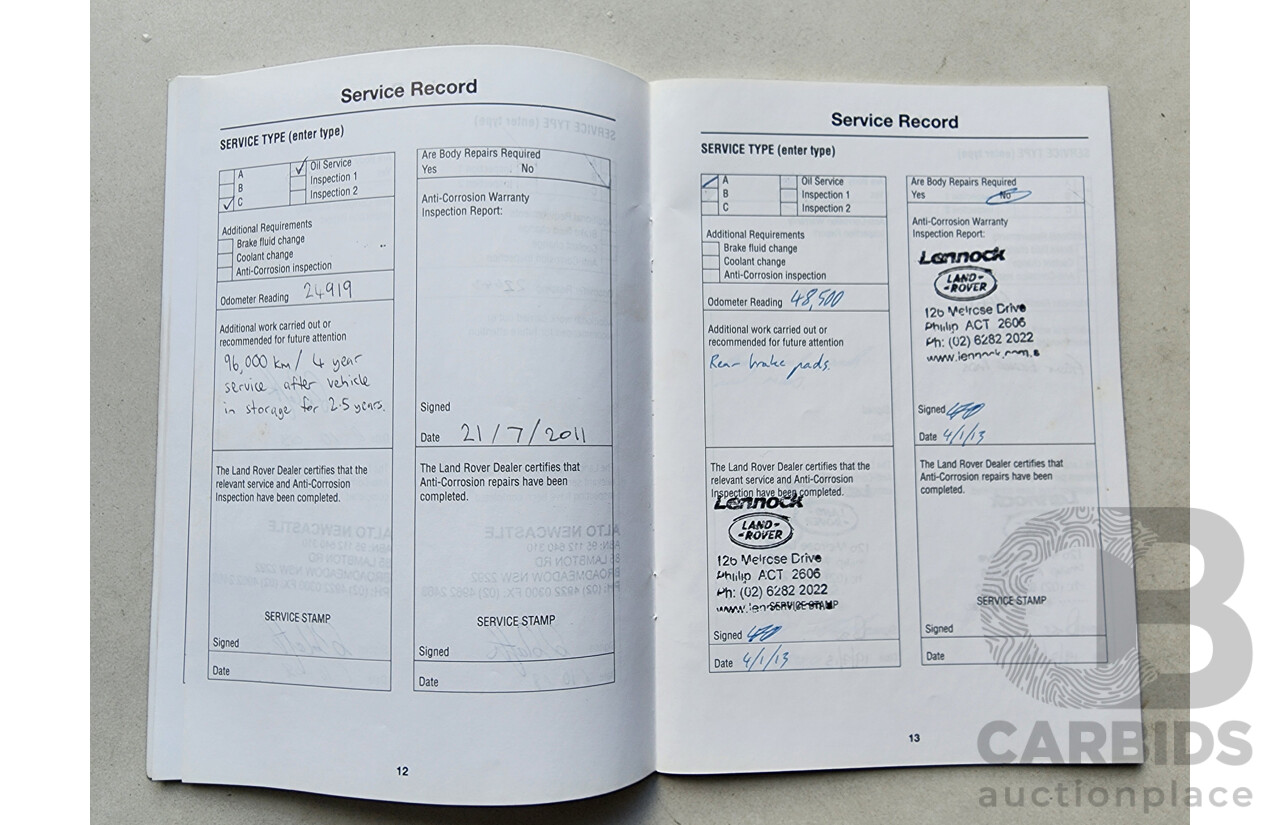 Service Record
SERVICE TYPE (enter type)
A
B
C
Oil Service
Inspection 1
Inspection 2
Additional Requirements
Brake fluid change
Coolant change
Anti-Corrosion inspection
Odometer Reading 24919
Additional work carried out or
recommended for future attention
96,000 km / 4 year
service after vehicle
in storage for 2.5 years.
The Land Rover Dealer certifies that the
relevant service and Anti-Corrosion
Inspection have been completed.
SERVICE STAMP
Signed
Date
Are Body Repairs Required
Yes No
Anti-Corrosion Warranty
Inspection Report:
Signed
Date 21/7/2011
The Land Rover Dealer certifies that
Anti-Corrosion repairs have been
completed.
SERVICE STAMP
Signed
Date
12
Service Record
SERVICE TYPE (enter type)
A
B
C
Oil Service
Inspection 1
Inspection 2
Additional Requirements
Brake fluid change
Coolant change
Anti-Corrosion inspection
Odometer Reading 48,500
Additional work carried out or
recommended for future attention
Rear brake pads.
The Land Rover Dealer certifies that the
relevant service and Anti-Corrosion
Inspection have been completed.
Lennock
LAND-
-ROVER
126 Melrose Drive
Phillip ACT 2606
Ph: (02) 6282 2022
SERVICE STAMP
Signed
Date 4/1/13
Are Body Repairs Required
Yes No
Anti-Corrosion Warranty
Inspection Report:
Lennock
LAND-
-ROVER
126 Melrose Drive
Phillip ACT 2606
Ph: (02) 6282 2022
Signed
Date 4/1/13
The Land Rover Dealer certifies that
Anti-Corrosion repairs have been
completed.
SERVICE STAMP
Signed
Date
13
CARBIDS
auctionplace